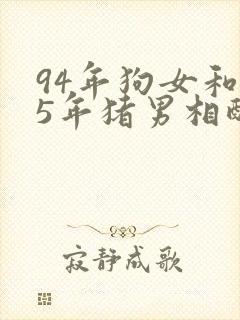 94年狗女和
5年猪男相配
寂静成歌